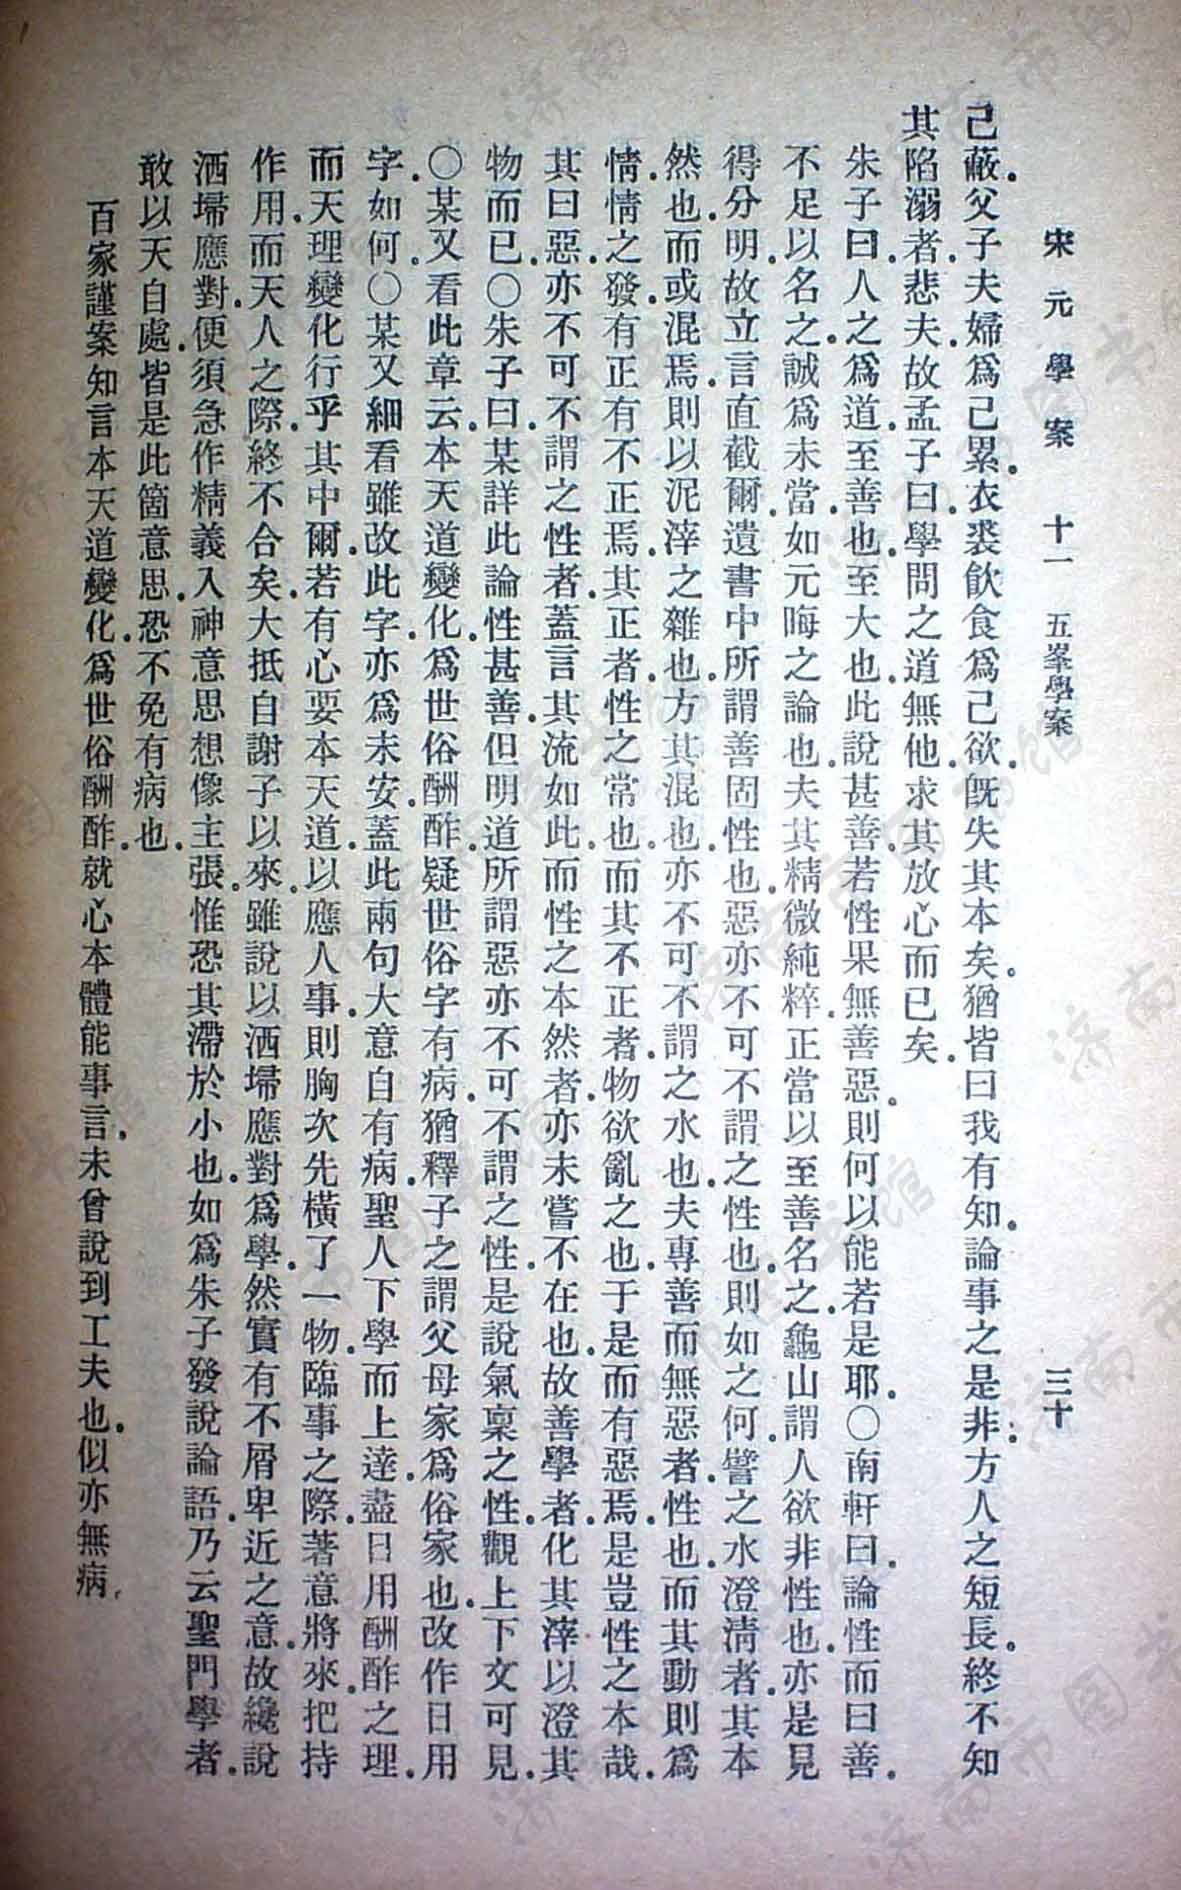 宋元學案 十一 五峯學案 三十
己蔽.父子夫婦爲己累.衣裘飮食爲己欲.旣失其本矣.猶皆曰我有知.論事之是非.方人之短長.終不知
其陷溺者.悲夫.故孟子曰.學問之道無他.求其放心而已矣.
朱子曰.人之爲道.至善也.至大也.此說甚善.若性果無善惡.則何以能若是耶.○南軒曰.論性而曰善.
不足以名之.誠爲未當.如元晦之論也.夫其精微純粹.正當以至善名之.龜山謂人欲非性也.亦是見
得分明.故立言直截爾.遺書中所謂善固性也.惡亦不可不謂之性也.則如之何.譬之水澄淸者.其本
然也.而或混焉.則以泥滓之雜也.方其混也.亦不可不謂之水也.夫專善而無惡者.性也.而其動則爲
情.情之發.有正有不正焉.其正者.性之常也.而其不正者.物欲亂之也.于是而有惡焉.是豈性之本哉.
其曰惡.亦不可不謂之性者.蓋言其流如此.而性之本然者.亦未嘗不在也.故善學者.化其滓以澄其
物而已.○朱子曰.某詳此論性甚善.但明道所謂惡亦不可不謂之性.是說氣稟之性.觀上下文可見.
○某又看此章云.本天道變化.爲世俗酬酢.疑世俗字有病.猶釋子之謂父母家爲俗家也.改作日用
字.如何.○某又細看.雖改此字.亦爲未安.蓋此兩句大意自有病.聖人下學而上達.盡日用酬酢之理.
而天理變化行乎其中爾.若有心要本天道.以應人事.則胸次先橫了一物.臨事之際.著意將來.把持
作用.而天人之際.終不合矣.大抵自謝子以來.雖說以洒埽應對爲學.然實有不屑卑近之意.故纔說
洒埽應對.便須急作精義入神意思.想像主張.惟恐其滯於小也.如爲朱子發說論語.乃云聖門學者.
敢以天自處.皆是此箇意思.恐不免有病也.
百家謹案.知言本天道變化.爲世俗酬酢.就心本體能事言.未曾說到工夫也.似亦無病.